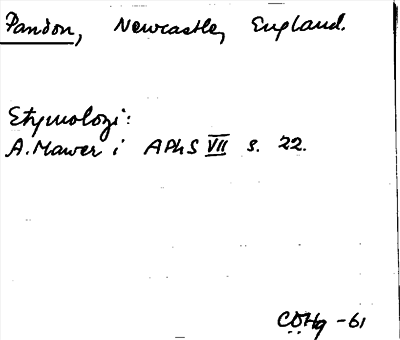 Pandon, Newcastle, England.
Etymologi:
A. Mawer i APhS VII s. 22.
CÖHg -61